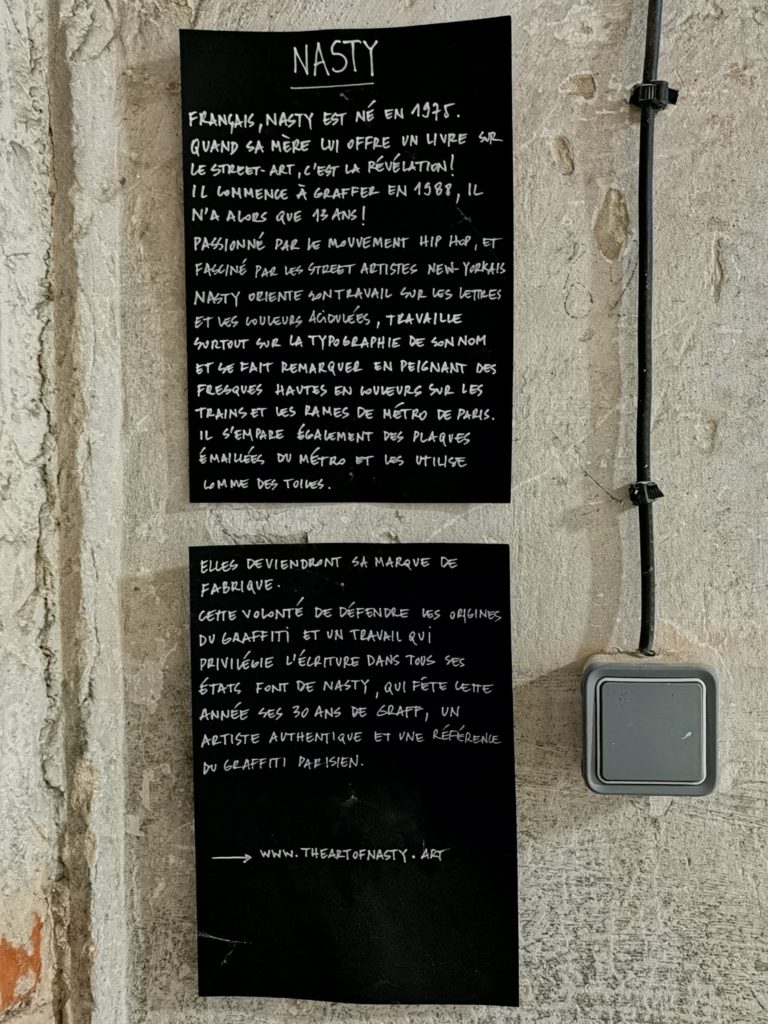 NASTY
FRANÇAIS, NASTY EST NÉ EN 1975.
QUAND SA MÈRE LUI OFFRE UN LIVRE SUR
LE STREET-ART, C'EST LA RÉVÉLATION!
IL COMMENCE À GRAFFER EN 1988, IL
N'A ALORS QUE 13 ANS!
PASSIONNÉ PAR LE MOUVEMENT HIP HOP, ET
FASCINÉ PAR LES STREET ARTISTES NEW-YORKAIS
NASTY ORIENTE SON TRAVAIL SUR LES LETTRES
ET LES COULEURS ACIDULÉES, TRAVAILLE
SURTOUT SUR LA TYPOGRAPHIE DE SON NOM
ET SE FAIT REMARQUER EN PEIGNANT DES
FRESQUES HAUTES EN COULEURS SUR LES
TRAINS ET LES RAMES DE MÉTRO DE PARIS.
IL S'EMPARE ÉGALEMENT DES PLAQUES
ÉMAILLÉES DU MÉTRO ET LES UTILISE
COMME DES TOILES.
ELLES DEVIENDRONT SA MARQUE DE
FABRIQUE.
CETTE VOLONTÉ DE DÉFENDRE LES ORIGINES
DU GRAFFITI ET UN TRAVAIL QUI
PRIVILÉGIE L'ÉCRITURE DANS TOUS SES
ÉTATS FONT DE NASTY, QUI FÊTE CETTE
ANNÉE SES 30 ANS DE GRAFF, UN
ARTISTE AUTHENTIQUE ET UNE RÉFÉRENCE
DU GRAFFITI PARISIEN.
→ WWW.THEARTOFNASTY.ART